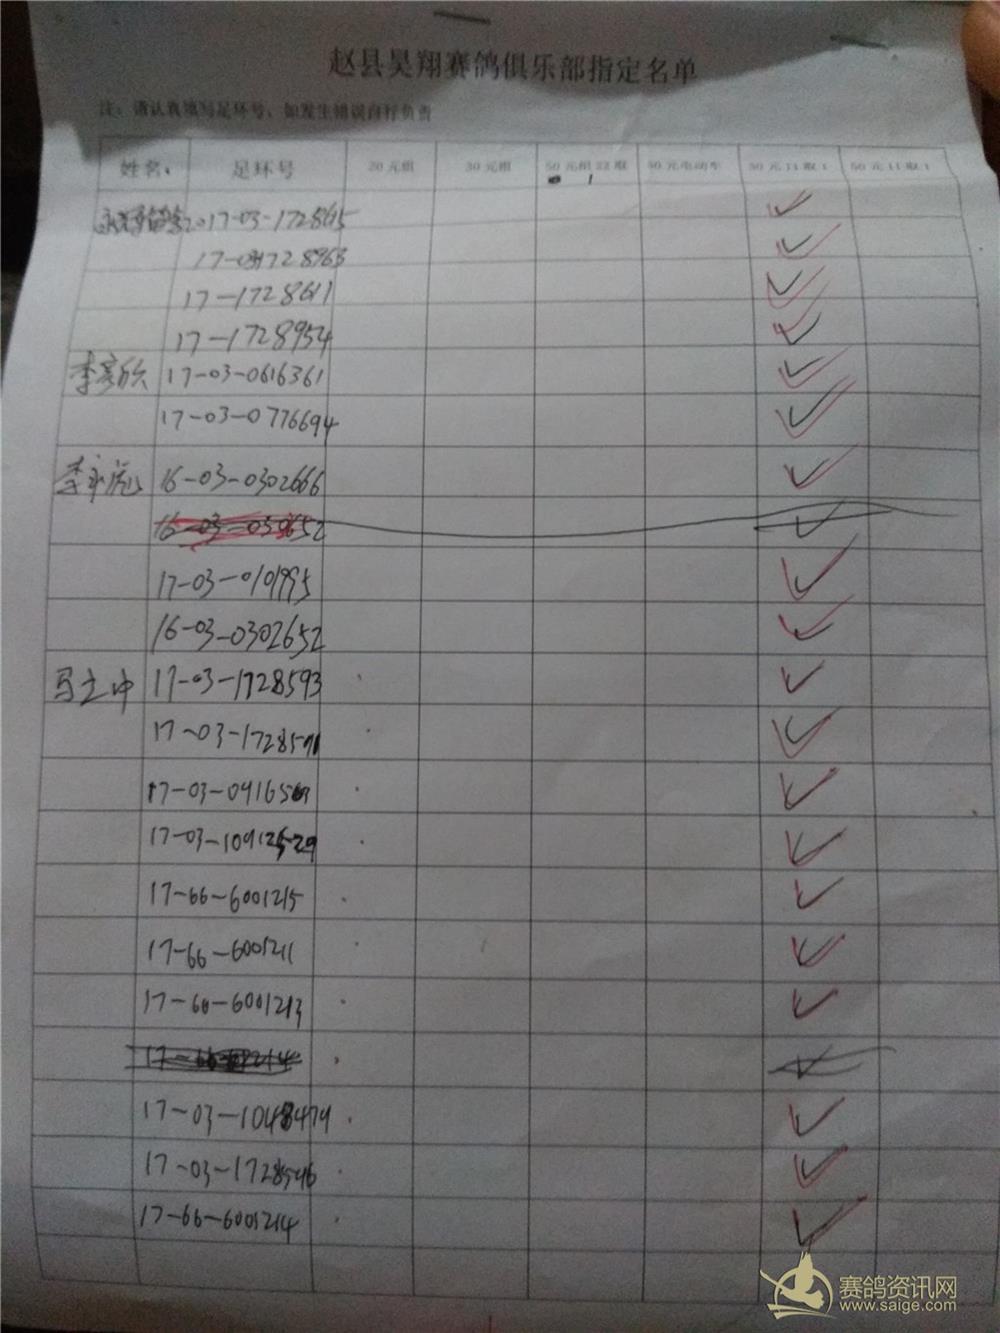 赵县昊翔赛鸽俱乐部指定名单
注：请认真填写足环号，如发生错误自行负责
姓名： 足环号 20元组 30元组 50元组22取1 50元电动车 50元11取1 50元11取1
2017-03-1728615
17-03-1728963
17-1728611
17-1728954
李彦欣 17-03-0616361
17-03-0776694
李永彪 16-03-0302666
16-03-030652
17-03-0101995
16-03-0302652
马立中 17-03-1728593
17-03-1728591
17-03-0916503
17-03-109125529
17-66-6001215
17-66-6001211
17-66-6001213
17-03-1048479
17-03-1728546
17-66-6001214
赛鸽资讯网
www.saige.com